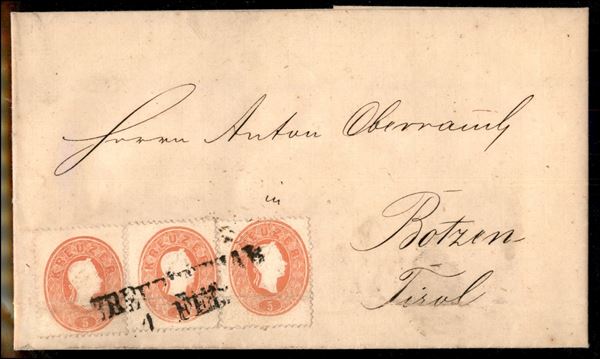 Herrn Anton Oberrauch
in
Botzen
Tirol
KREUZER
KREUZER
KREUZER
5
5
5
FEB.